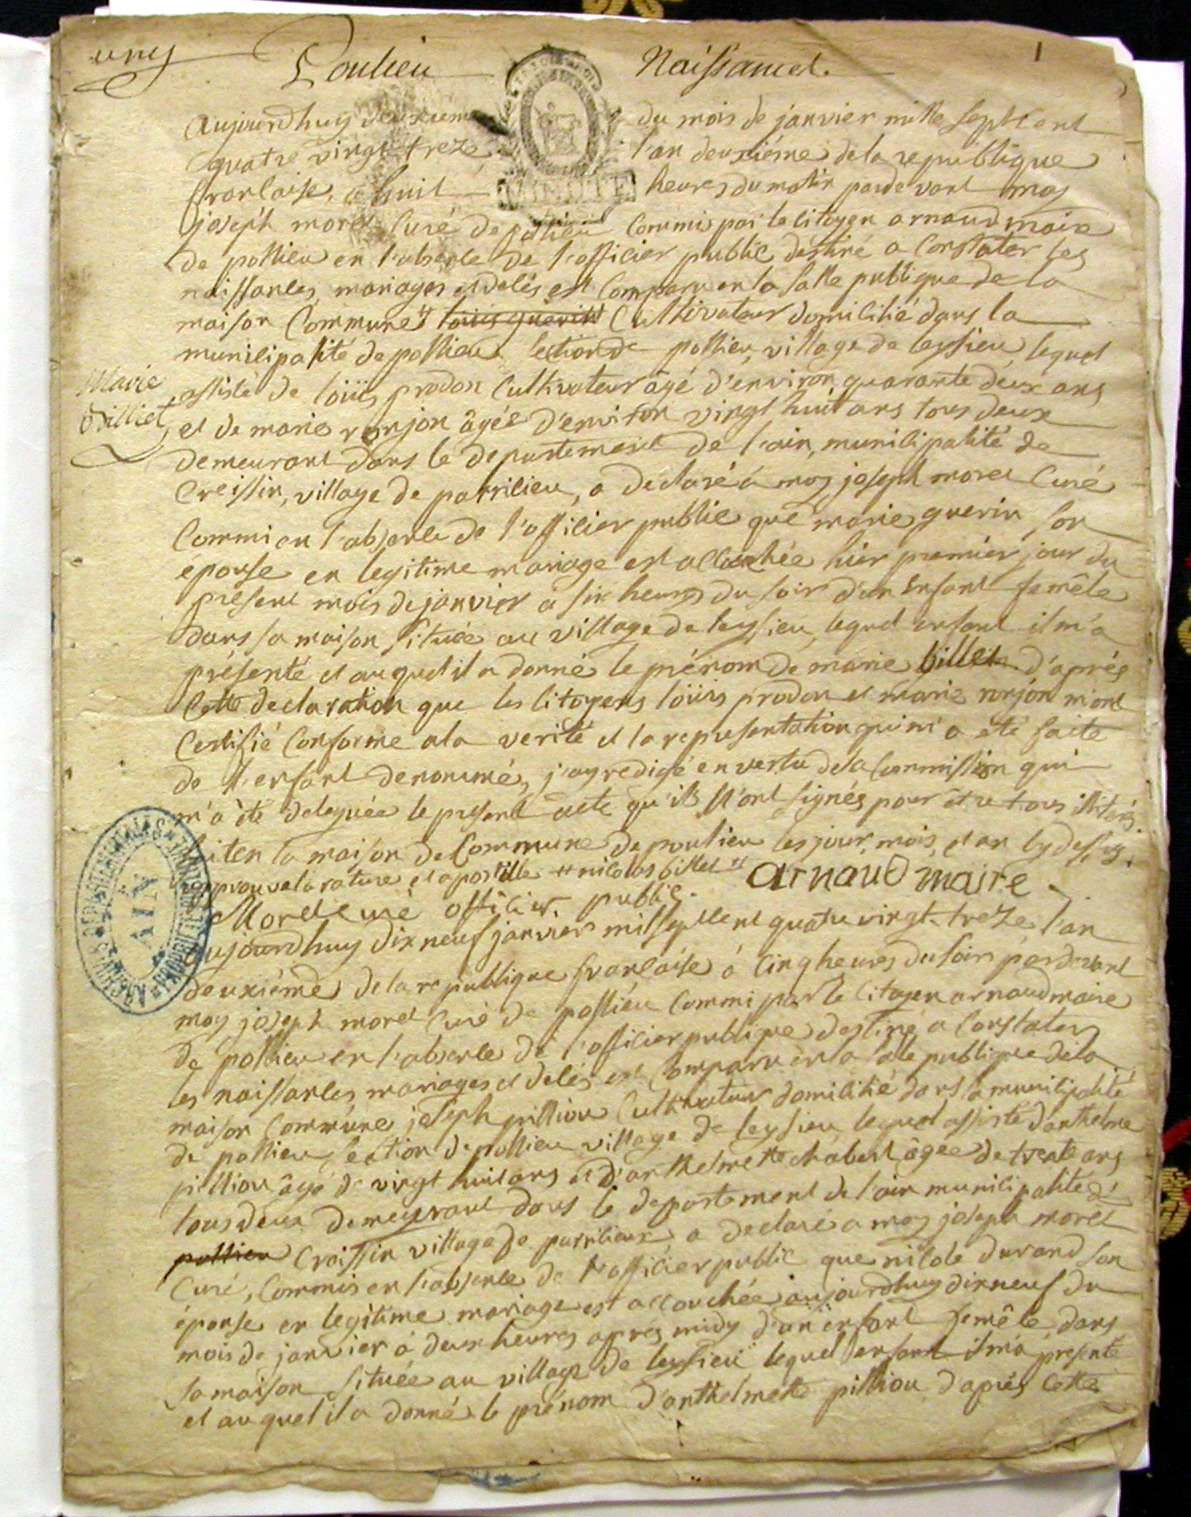 uny Poulieu Naissances. 1
Aujourdhuy deuxieme du mois de janvier mille septcent
quatre vingt treze, l'an deuxiéme de la republique
francaise, a huit heures du matin pardevant moy
joseph morel Curé de pollieu Commi par le citoyen arnaud maire
de pollieu en l'absence de l'officier public destiné a Constater les
naissances, mariages et décés est Comparu en la salle publique de la
maison Commune " louis guerin Cultivateur domicilié dans la
municipalité de pollieu section de pollieu, village de leyssieu, lequel
assisté de loüis prodon Cultivateur âgé d'environ quarante deux ans
Marie Billiet
et de marie ronjon âgée d'environ vingt huit ans tous deux
demeurant dans le departement de l'ain, municipalité de
Creissin, village de parrilieu, a declaré à moy joseph morel Curé
Commi en l'absence de l'officier public que marie guerin son
epouse en legitime mariage est accouchée hier premier jour du
présent mois de janvier a six heures du soir d'un enfant femêle
dans sa maison située au village de leyssieu, lequel enfant il m'a
présenté et auquel il a donné le prénom de marie billet d'après
Cette declaration que les citoyens loüis prodon et marie ronjon m'ont
Certifié Conforme a la verité et la representation qui m'a été faite
de l'enfant denommé, j'ay redigé en vertu de la Commission qui
m'a été deleguée le present acte qu'ils n'ont signés pour être tous illiterés.
fait en la maison de Commune de poulieu les jour, mois, et an cy dessus.
approuve la rature et apostille " nicolas billet " arnaud maire
Morel curé officier public.
aujourdhuy dix neuf janvier mil septcent quatre vingt-treze l'an
deuxiéme de la republique francaise à cinq heures du soir pardevant
moy joseph morel Curé de pollieu Commi par le Citoyen arnaud maire
de pollieu en l'absence de l'officier publique destiné a Constater
les naissances mariages et décés est Comparu en la salle publique de la
maison Commune joseph pillion Cultivateur domicilié dans la municipalité
de pollieu, section de pollieu village de leyssieu lequel assisté d'anthelme
pillion âgé de vingt huit ans et d'anthelmette chabert âgée de trente ans
tous deux demeurant dans le departement de l'ain municipalité de
pollieu Croissin village de parrilieux a declaré a moy joseph morel
Curé, Commis en l'absence de l'officier public que nicole durand son
épouse en legitime mariage est accouchée aujourdhuy dix neuf du
mois de janvier à deux heures apres midy d'un enfant femêle dans
sa maison située au village de leyssieu lequel enfant il m'a presenté
et auquel il a donné le prénom d'anthelmette pillion d'apres Cette
ARCHIVES DEPARTEMENTALES
AIN